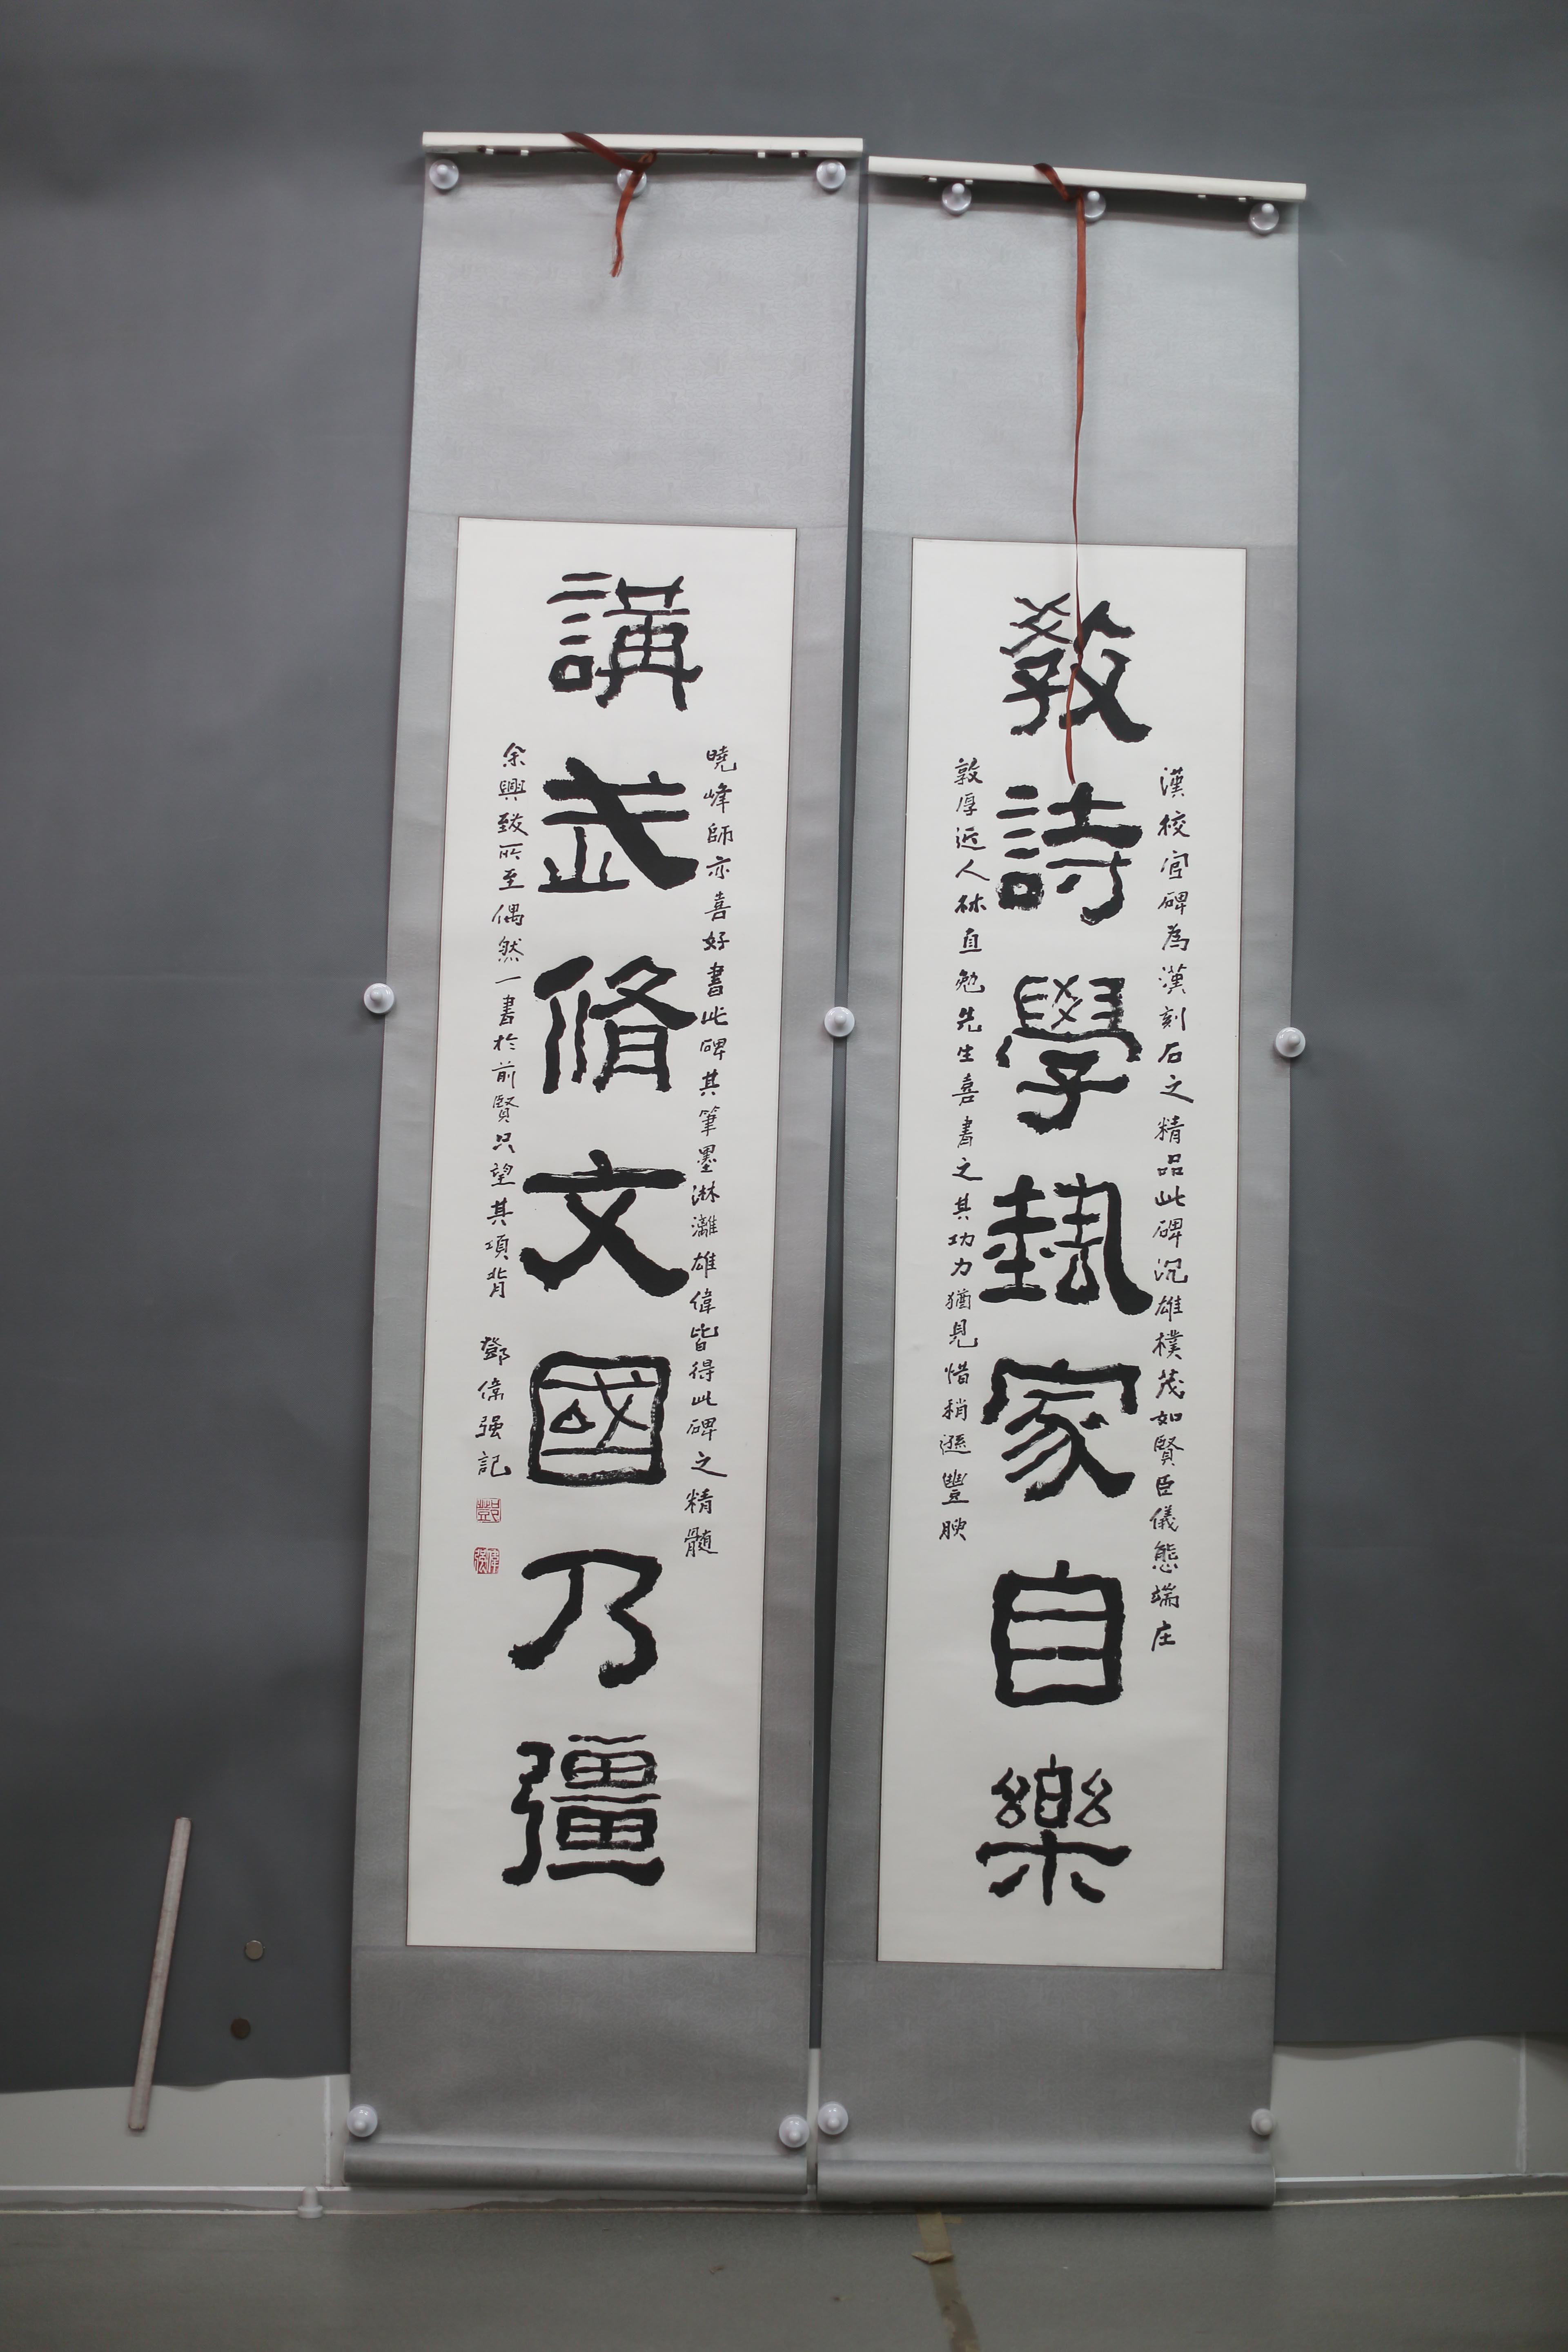 教詩學藝家自樂
漢校官碑為漢刻石之精品此碑沉雄樸茂如賢臣儀態端庄
敦厚近人林直勉先生喜書之其功力猶見惜稍遜豐腴
講武脩文國乃彊
曉峰師亦喜好書此碑其筆墨淋漓雄偉皆得此碑之精髓
余興致所至偶然一書於前賢只望其項背
鄧偉强記
鄧
偉强